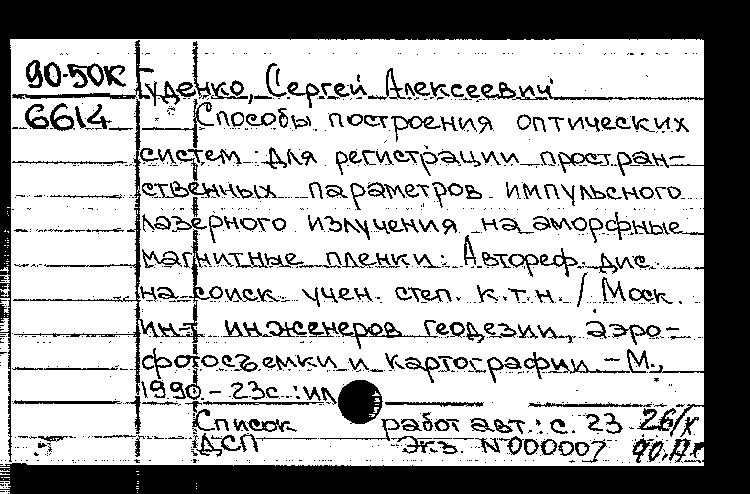 90-50К Гуденко, Сергей Алексеевич
6614 Способы построения оптических
систем для регистрации простран-
ственных параметров импульсного
лазерного излучения на аморфные
магнитные пленки: Автореф. дис.
на соиск. учен. степ. к.т.н. / Моск.
ин-т инженеров геодезии, аэро-
фотосъемки и картографии. – М.,
1990. – 23с.: ил
Список работ авт.: с. 23 26/X
ДСП Экз. N 000007 90.